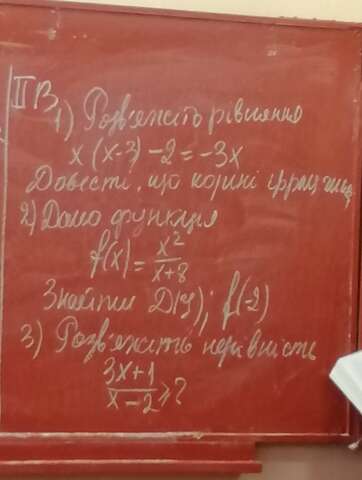 ІІ В.
1) Розв'яжіть рівняння
x(x-3)-2=-3x
Довести, що корені іррац. числа
2) Дано функція
f(x)=x²/(x+8)
Знайти D(y); f(-2)
3) Розв'яжіть нерівність
(3x+1)/(x-2)≥?